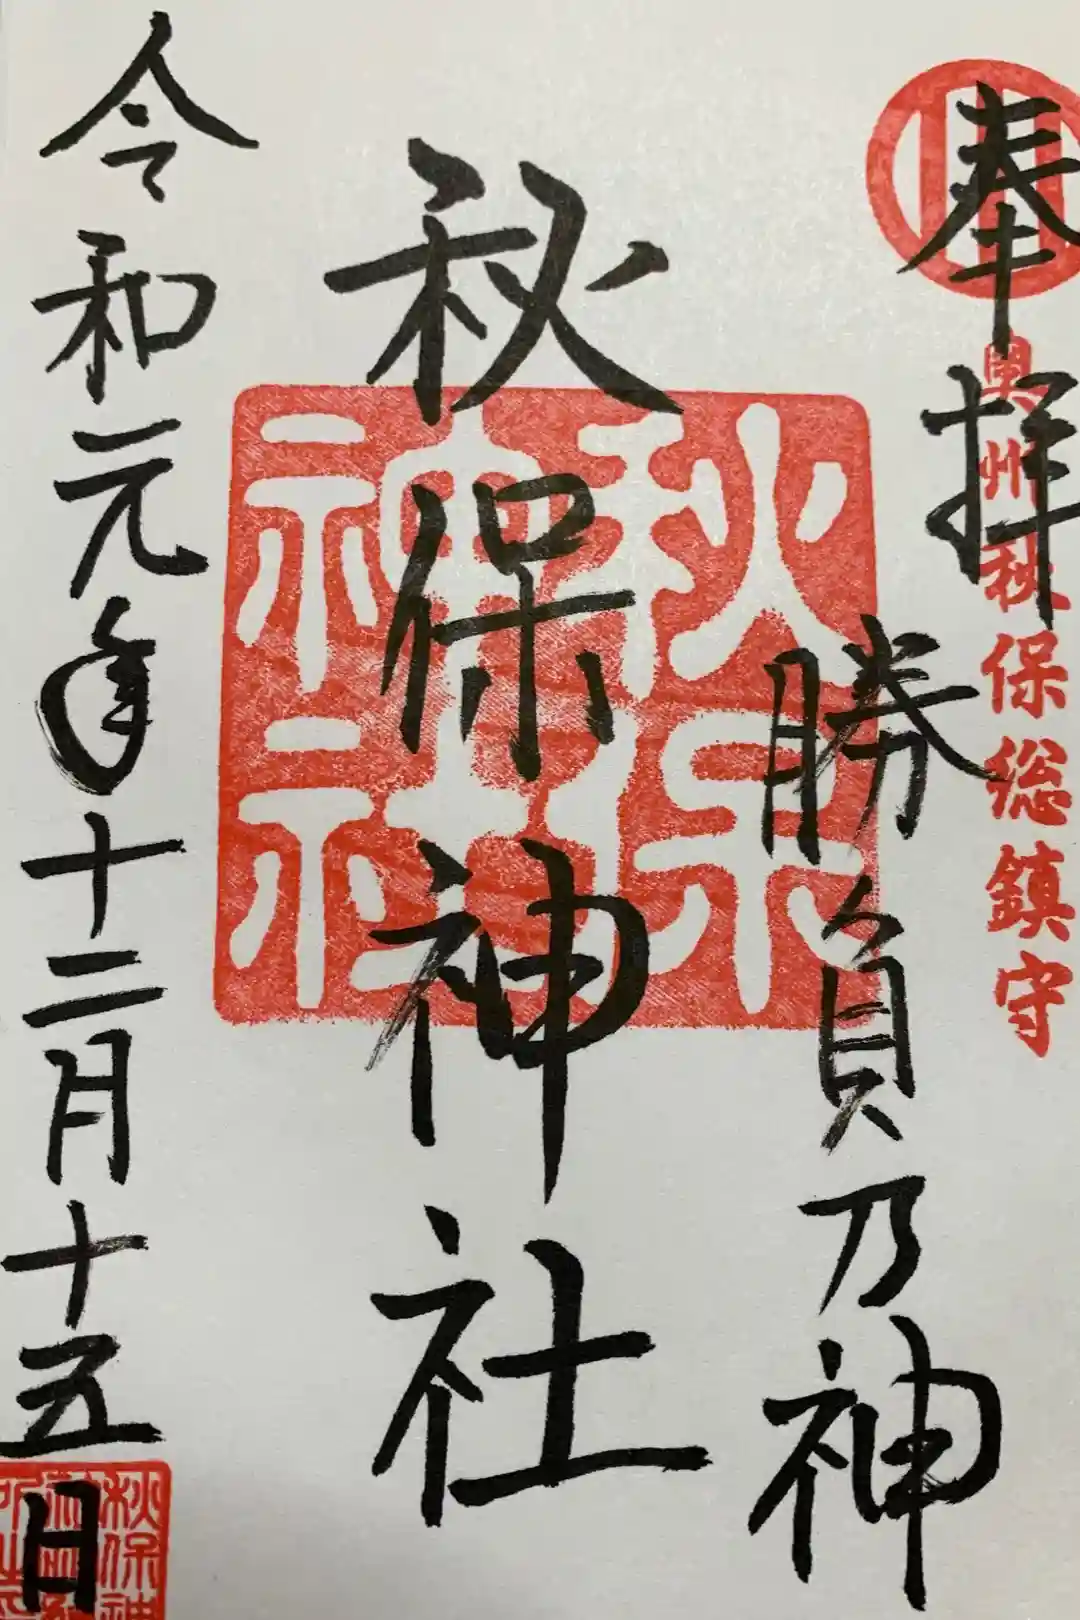 奉拝
奥州秋保総鎮守
勝負乃神
秋保神社
秋保神社
令和元年十二月十五日
秋保神